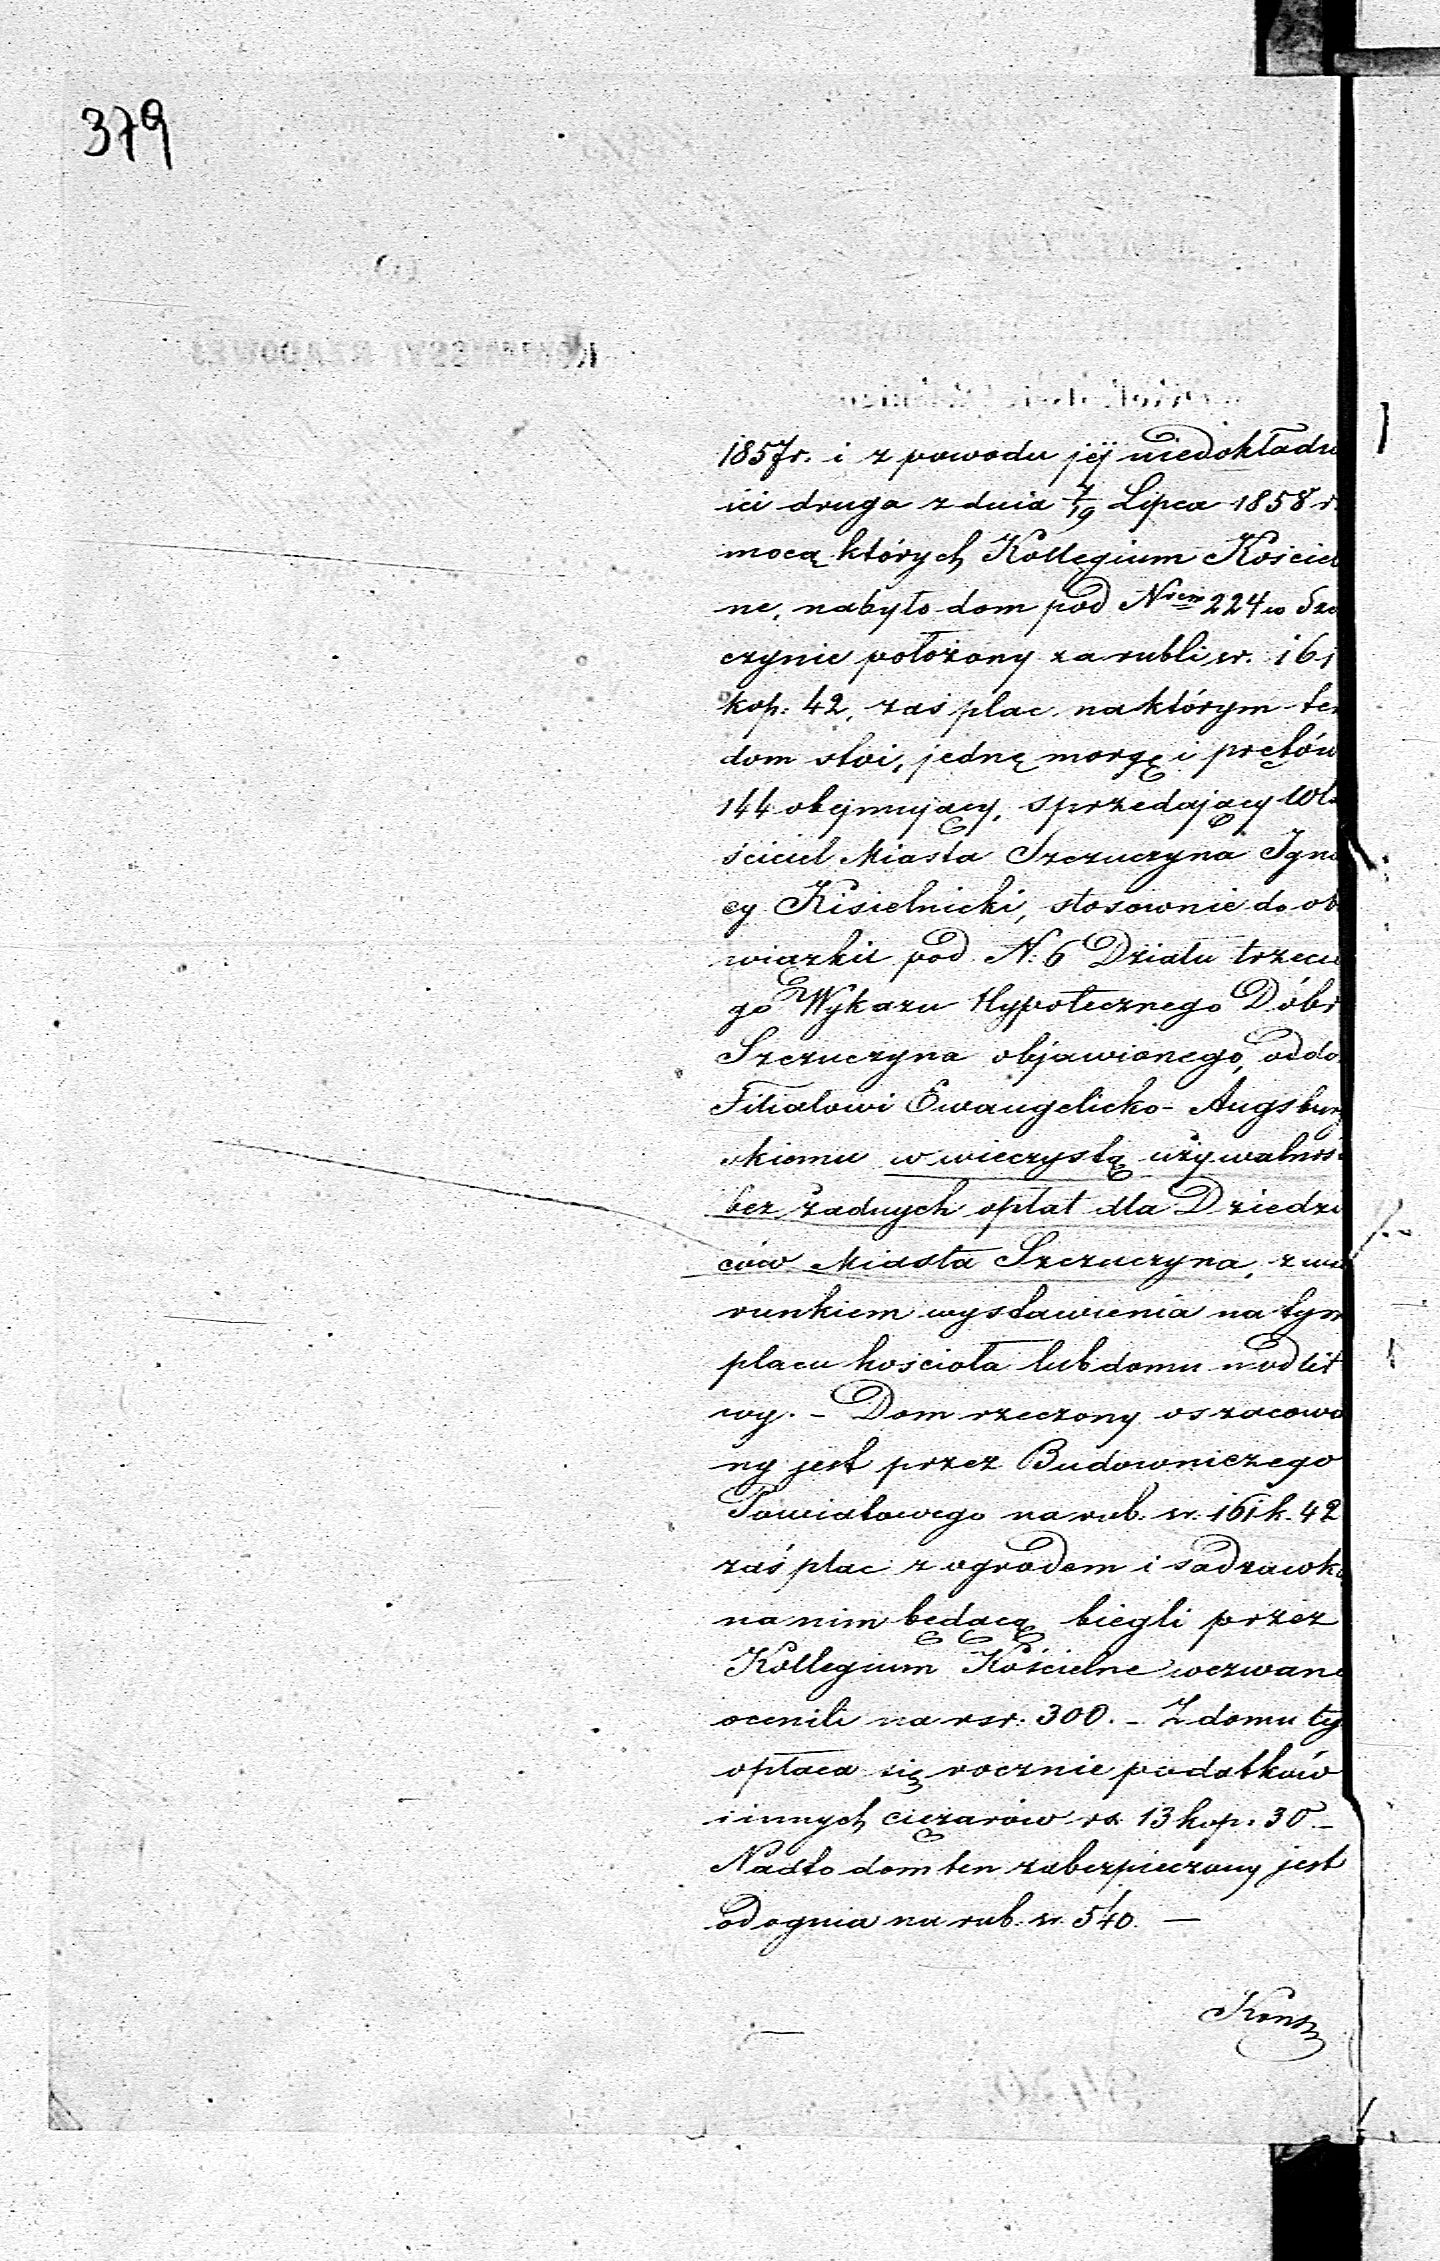 379
1857r. i z powodu jéj niedokładn
ści druga z dnia 7/19 Lipca 1858 r.
mocą których Kollegium Kościel
ne, nabyło dom pod Nrem 224 w Szcz
czynie położony za rubli sr. 161
kop: 42, zaś plac na którym ten
dom stoi, jednę morgę i prętów
144 obejmujący, sprzedający Wła
ściciel Miasta Szczuczyna Igna
cy Kisielnicki, stosownie do obo
wiązku pod N. 6 Działu trzecie
go Wykazu Hypotecznego Dóbr
Szczuczyna objawionego, oddał
Filialowi Ewangelicko-Augsburg
skiemu w wieczystą używalność
bez żadnych opłat dla Dziedzi
ców Miasta Szczuczyna, z wa
runkiem wystawienia na tym
placu kościoła lub domu modlit
wy. – Dom rzeczony oszacowa
ny jest przez Budowniczego
Powiatowego na rub. sr. 161 k. 42
zaś plac z ogrodem i sadzawką
na nim będącą biegli przez
Kollegium Kościelne wezwane
ocenili na rsr. 300. – Z domu tego
opłaca się rocznie podatków
i innych ciężarów rs. 13 kop. 30 –
Nadto dom ten zabezpieczony jest
od ognia na rub. sr. 540. –